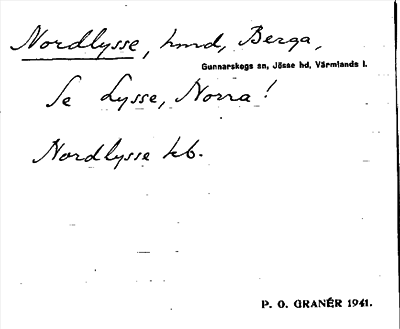 Nordlysse, hmd, Berga,
Gunnarskogs sn, Jösse hd, Värmlands l.
Se Lysse, Norra!
Nordlysse kb.
P. O. GRANÉR 1941.